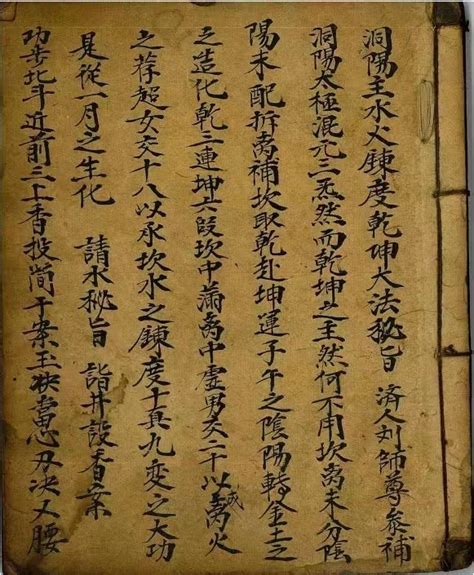 洞陽王水火鍊度乾坤大法秘旨 済人刘師尊叅補
洞陽太極混元三炁然而乾坤之主然何不用坎离未分陰
陽未配拆离補坎取乾赴坤運子午之陰陽轉金土之
之造化乾三連坤六叚坎中滿离中虛男交二十以成离火
之荐超女交十八以永坎水之鍊度十真九变之大功
是從一月之生化 請水秘旨 詣井設香案
功步北斗近前三上香投筒于案玉袂書忍刃决乂腰